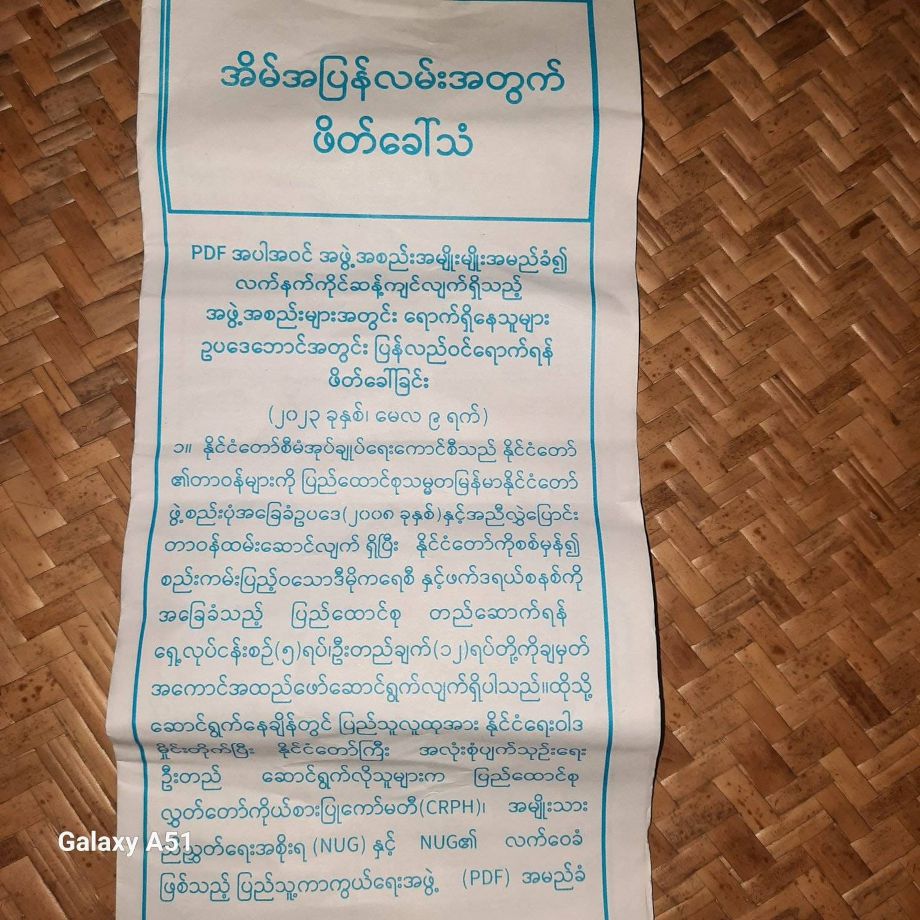 အိမ်အပြန်လမ်းအတွက်
ဖိတ်ခေါ်သံ
PDF အပါအဝင် အဖွဲ့အစည်းအမျိုးမျိုးအမည်ခံ၍
လက်နက်ကိုင်ဆန့်ကျင်လျက်ရှိသည့်
အဖွဲ့အစည်းများအတွင်း ရောက်ရှိနေသူများ
ဥပဒေဘောင်အတွင်း ပြန်လည်ဝင်ရောက်ရန်
ဖိတ်ခေါ်ခြင်း
(၂၀၂၃ ခုနှစ်၊ မေလ ၉ ရက်)
၁။ နိုင်ငံတော်စီမံအုပ်ချုပ်ရေးကောင်စီသည် နိုင်ငံတော်
၏တာဝန်များကို ပြည်ထောင်စုသမ္မတမြန်မာနိုင်ငံတော်
ဖွဲ့စည်းပုံအခြေခံဥပဒေ(၂၀၀၈ ခုနှစ်)နှင့်အညီလွှဲပြောင်း
တာဝန်ထမ်းဆောင်လျက် ရှိပြီး နိုင်ငံတော်ကိုစစ်မှန်၍
စည်းကမ်းပြည့်ဝသောဒီမိုကရေစီ နှင့်ဖက်ဒရယ်စနစ်ကို
အခြေခံသည့် ပြည်ထောင်စု တည်ဆောက်ရန်
ရှေ့လုပ်ငန်းစဉ်(၅)ရပ်၊ဦးတည်ချက်(၁၂)ရပ်တို့ကိုချမှတ်
အကောင်အထည်ဖော်ဆောင်ရွက်လျက်ရှိပါသည်။ထိုသို့
ဆောင်ရွက်နေချိန်တွင် ပြည်သူလူထုအား နိုင်ငံရေးဝါဒ
မှိုင်းတိုက်ပြီး နိုင်ငံတော်ကြီး အလုံးစုံပျက်သုဉ်းရေး
ဦးတည် ဆောင်ရွက်လိုသူများက ပြည်ထောင်စု
လွှတ်တော်ကိုယ်စားပြုကော်မတီ(CRPH)၊ အမျိုးသား
ညီညွတ်ရေးအစိုးရ (NUG) နှင့် NUG၏ လက်ဝေခံ
ဖြစ်သည့် ပြည်သူ့ကာကွယ်ရေးအဖွဲ့ (PDF) အမည်ခံ
Galaxy A51